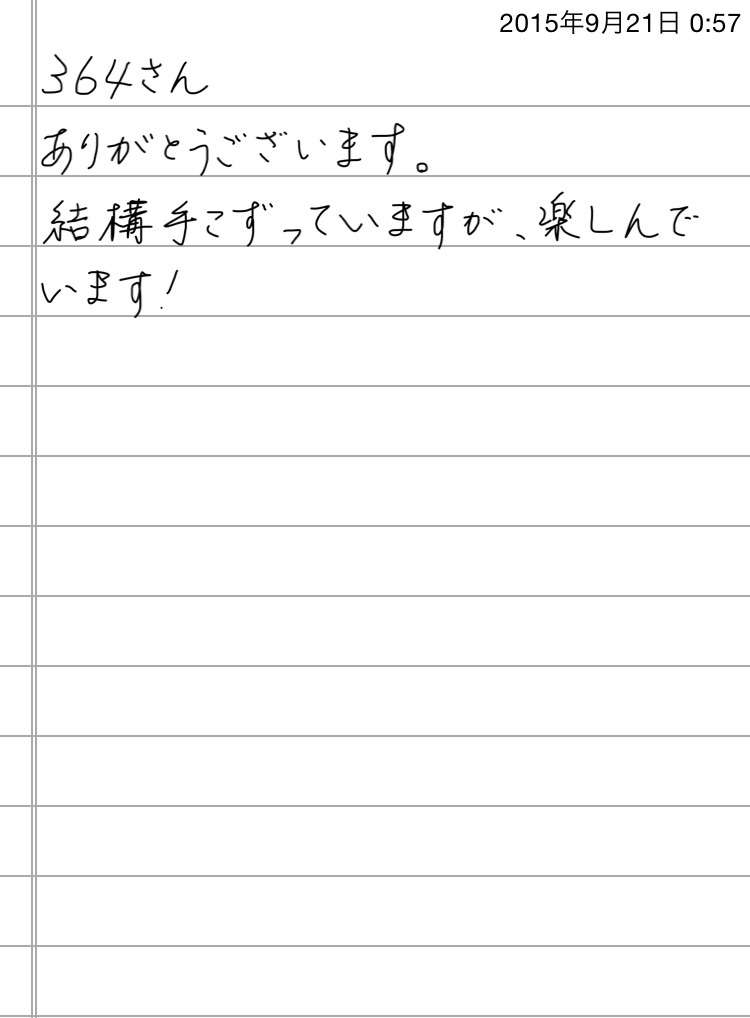 2015年9月21日 0:57
364さん
ありがとうございます。
結構手こずっていますが、楽しんで
います!